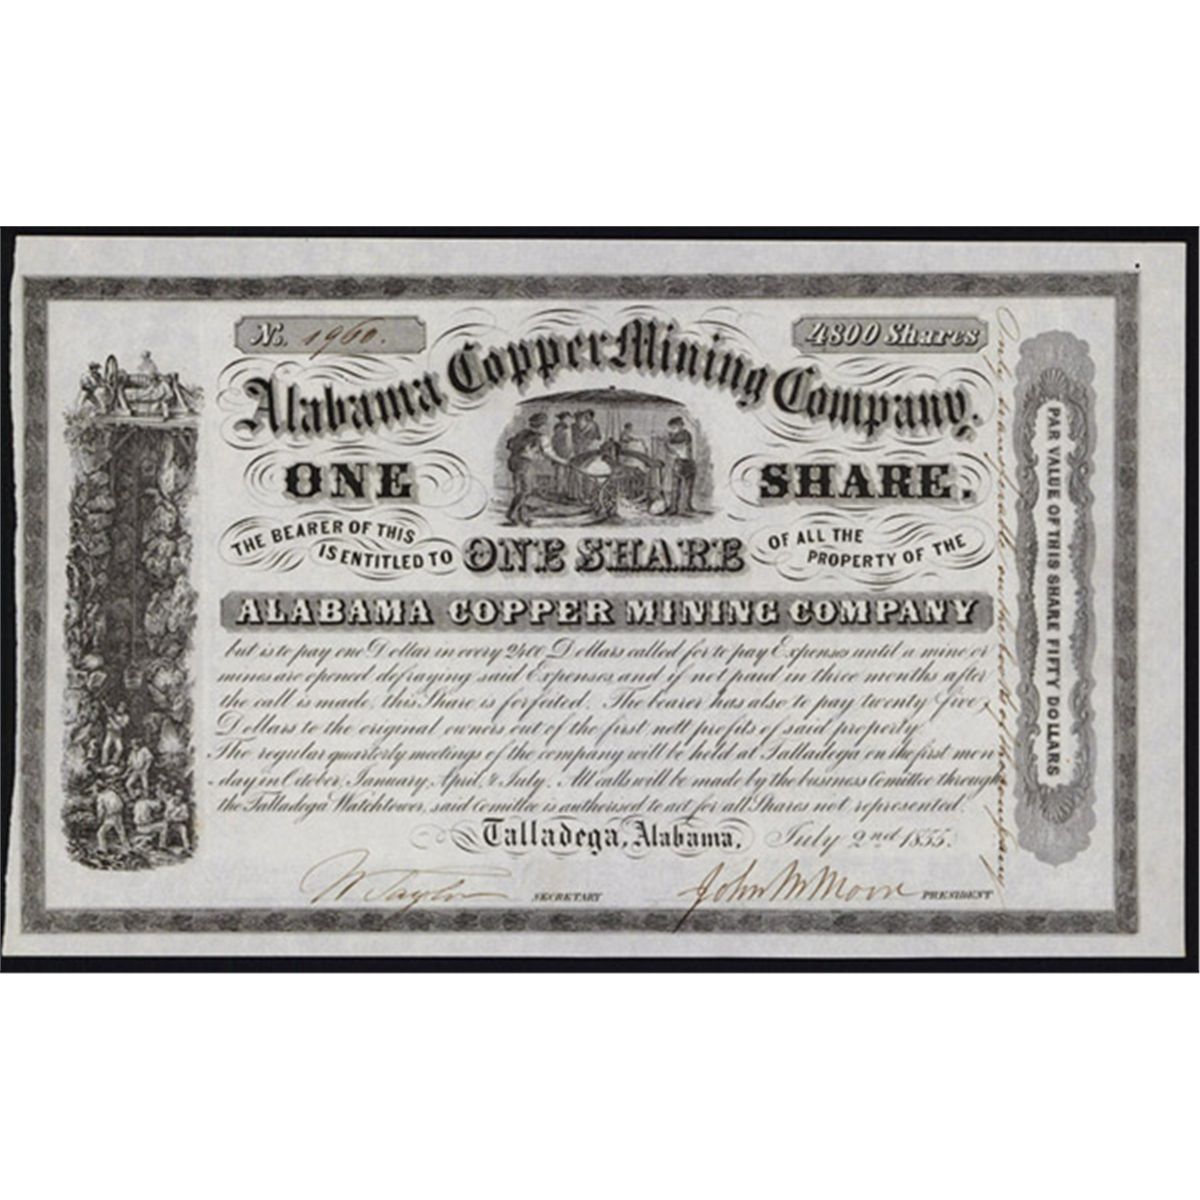 No. 1960.
4800 Shares
Alabama Copper Mining Company.
ONE SHARE.
THE BEARER OF THIS
IS ENTITLED TO
ONE SHARE
OF ALL THE
PROPERTY OF THE
ALABAMA COPPER MINING COMPANY
but is to pay one Dollar in every 2400 Dollars called for to pay Expenses until a mine or
mines are opened defraying said Expenses, and if not paid in three months after
the call is made, this Share is forfeited. The bearer has also to pay twenty five
Dollars to the original owners out of the first nett profits of said property.
The regular quarterly meetings of the company will be held at Talladega on the first mon-
day in October, January, April, & July. All calls will be made by the business Comittee through
the Talladega Watchtower, said Comittee is authorised to act for all Shares not represented.
Talladega, Alabama, July 2nd 1855.
W Taylor SECRETARY
John M Moore PRESIDENT
Only transferable on the books of the Company
PAR VALUE OF THIS SHARE FIFTY DOLLARS